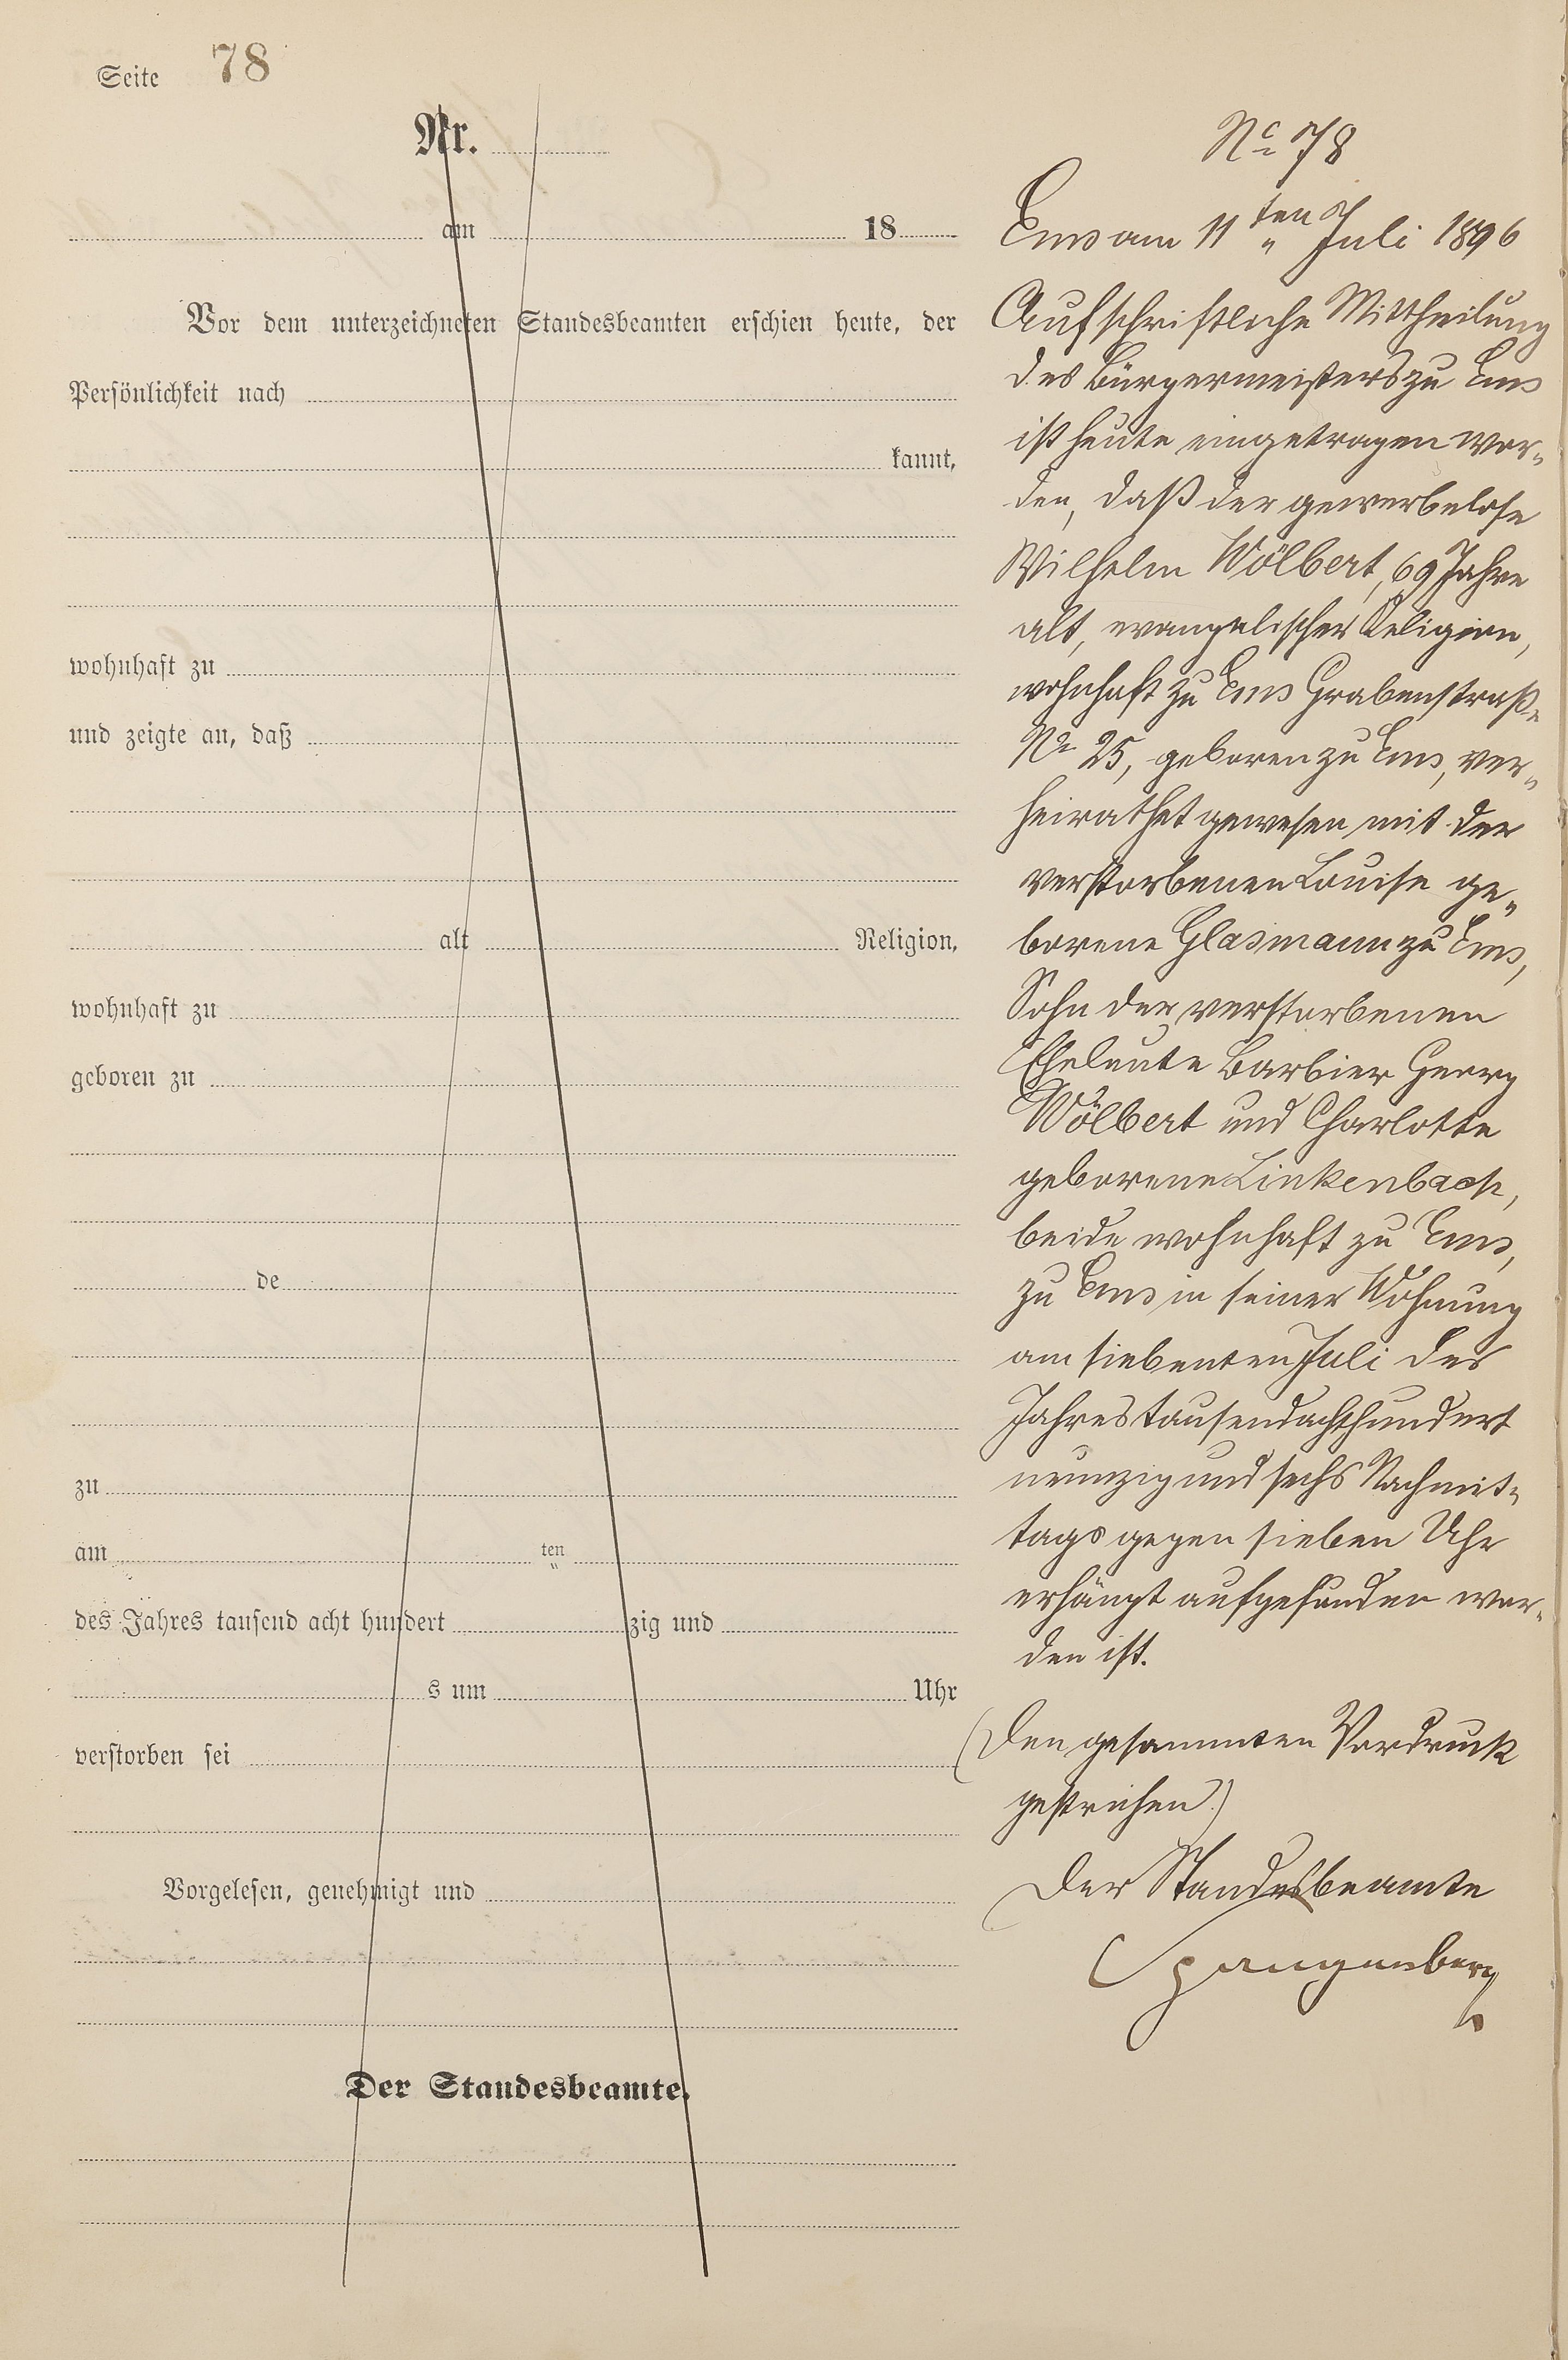 Seite 78
Nr.
am 18
Vor dem unterzeichneten Standesbeamten erschien heute, der
Persönlichkeit nach
kannt,
wohnhaft zu
und zeigte an, daß
alt Religion,
wohnhaft zu
geboren zu
de
zu
am ten
des Jahres tausend acht hundert zig und
s um Uhr
verstorben sei
Vorgelesen, genehmigt und
Der Standesbeamte.
No 78
Ems am 11ten Juli 1896
Auf schriftliche Mittheilung
des Bürgermeisters zu Ems
ist heute eingetragen wor-
den, daß der gewerbelose
Wilhelm Wölbert, 69 Jahre
alt, evangelischer Religion,
wohnhaft zu Ems Grabenstraße
No 25, geboren zu Ems, ver-
heirathet gewesen mit der
verstorbenen Louise ge-
borene Glasmann zu Ems,
Sohn der verstorbenen
Eheleute Barbier Georg
Wölbert und Charlotte
geborene Linkenbach,
beide wohnhaft zu Ems,
zu Ems in seiner Wohnung
am siebenten Juli des
Jahres tausendachthundert
neunzig und sechs Nachmit-
tags gegen sieben Uhr
erhängt aufgefunden wor-
den ist.
(Den gesammten Vordruck
gestrichen.)
Der Standesbeamte
Spangenberg